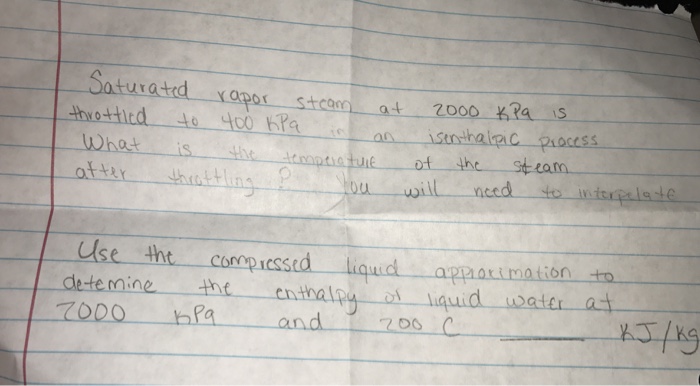 Saturated vapor steam at 2000 KPa is
throttled to 400 KPa in an isenthalpic process
What is the temperature of the steam
after throttling? You will need to interpelate
Use the compressed liquid approximation to
detemine the enthalpy of liquid water at
7000 KPa and 200 C ____ KJ/kg